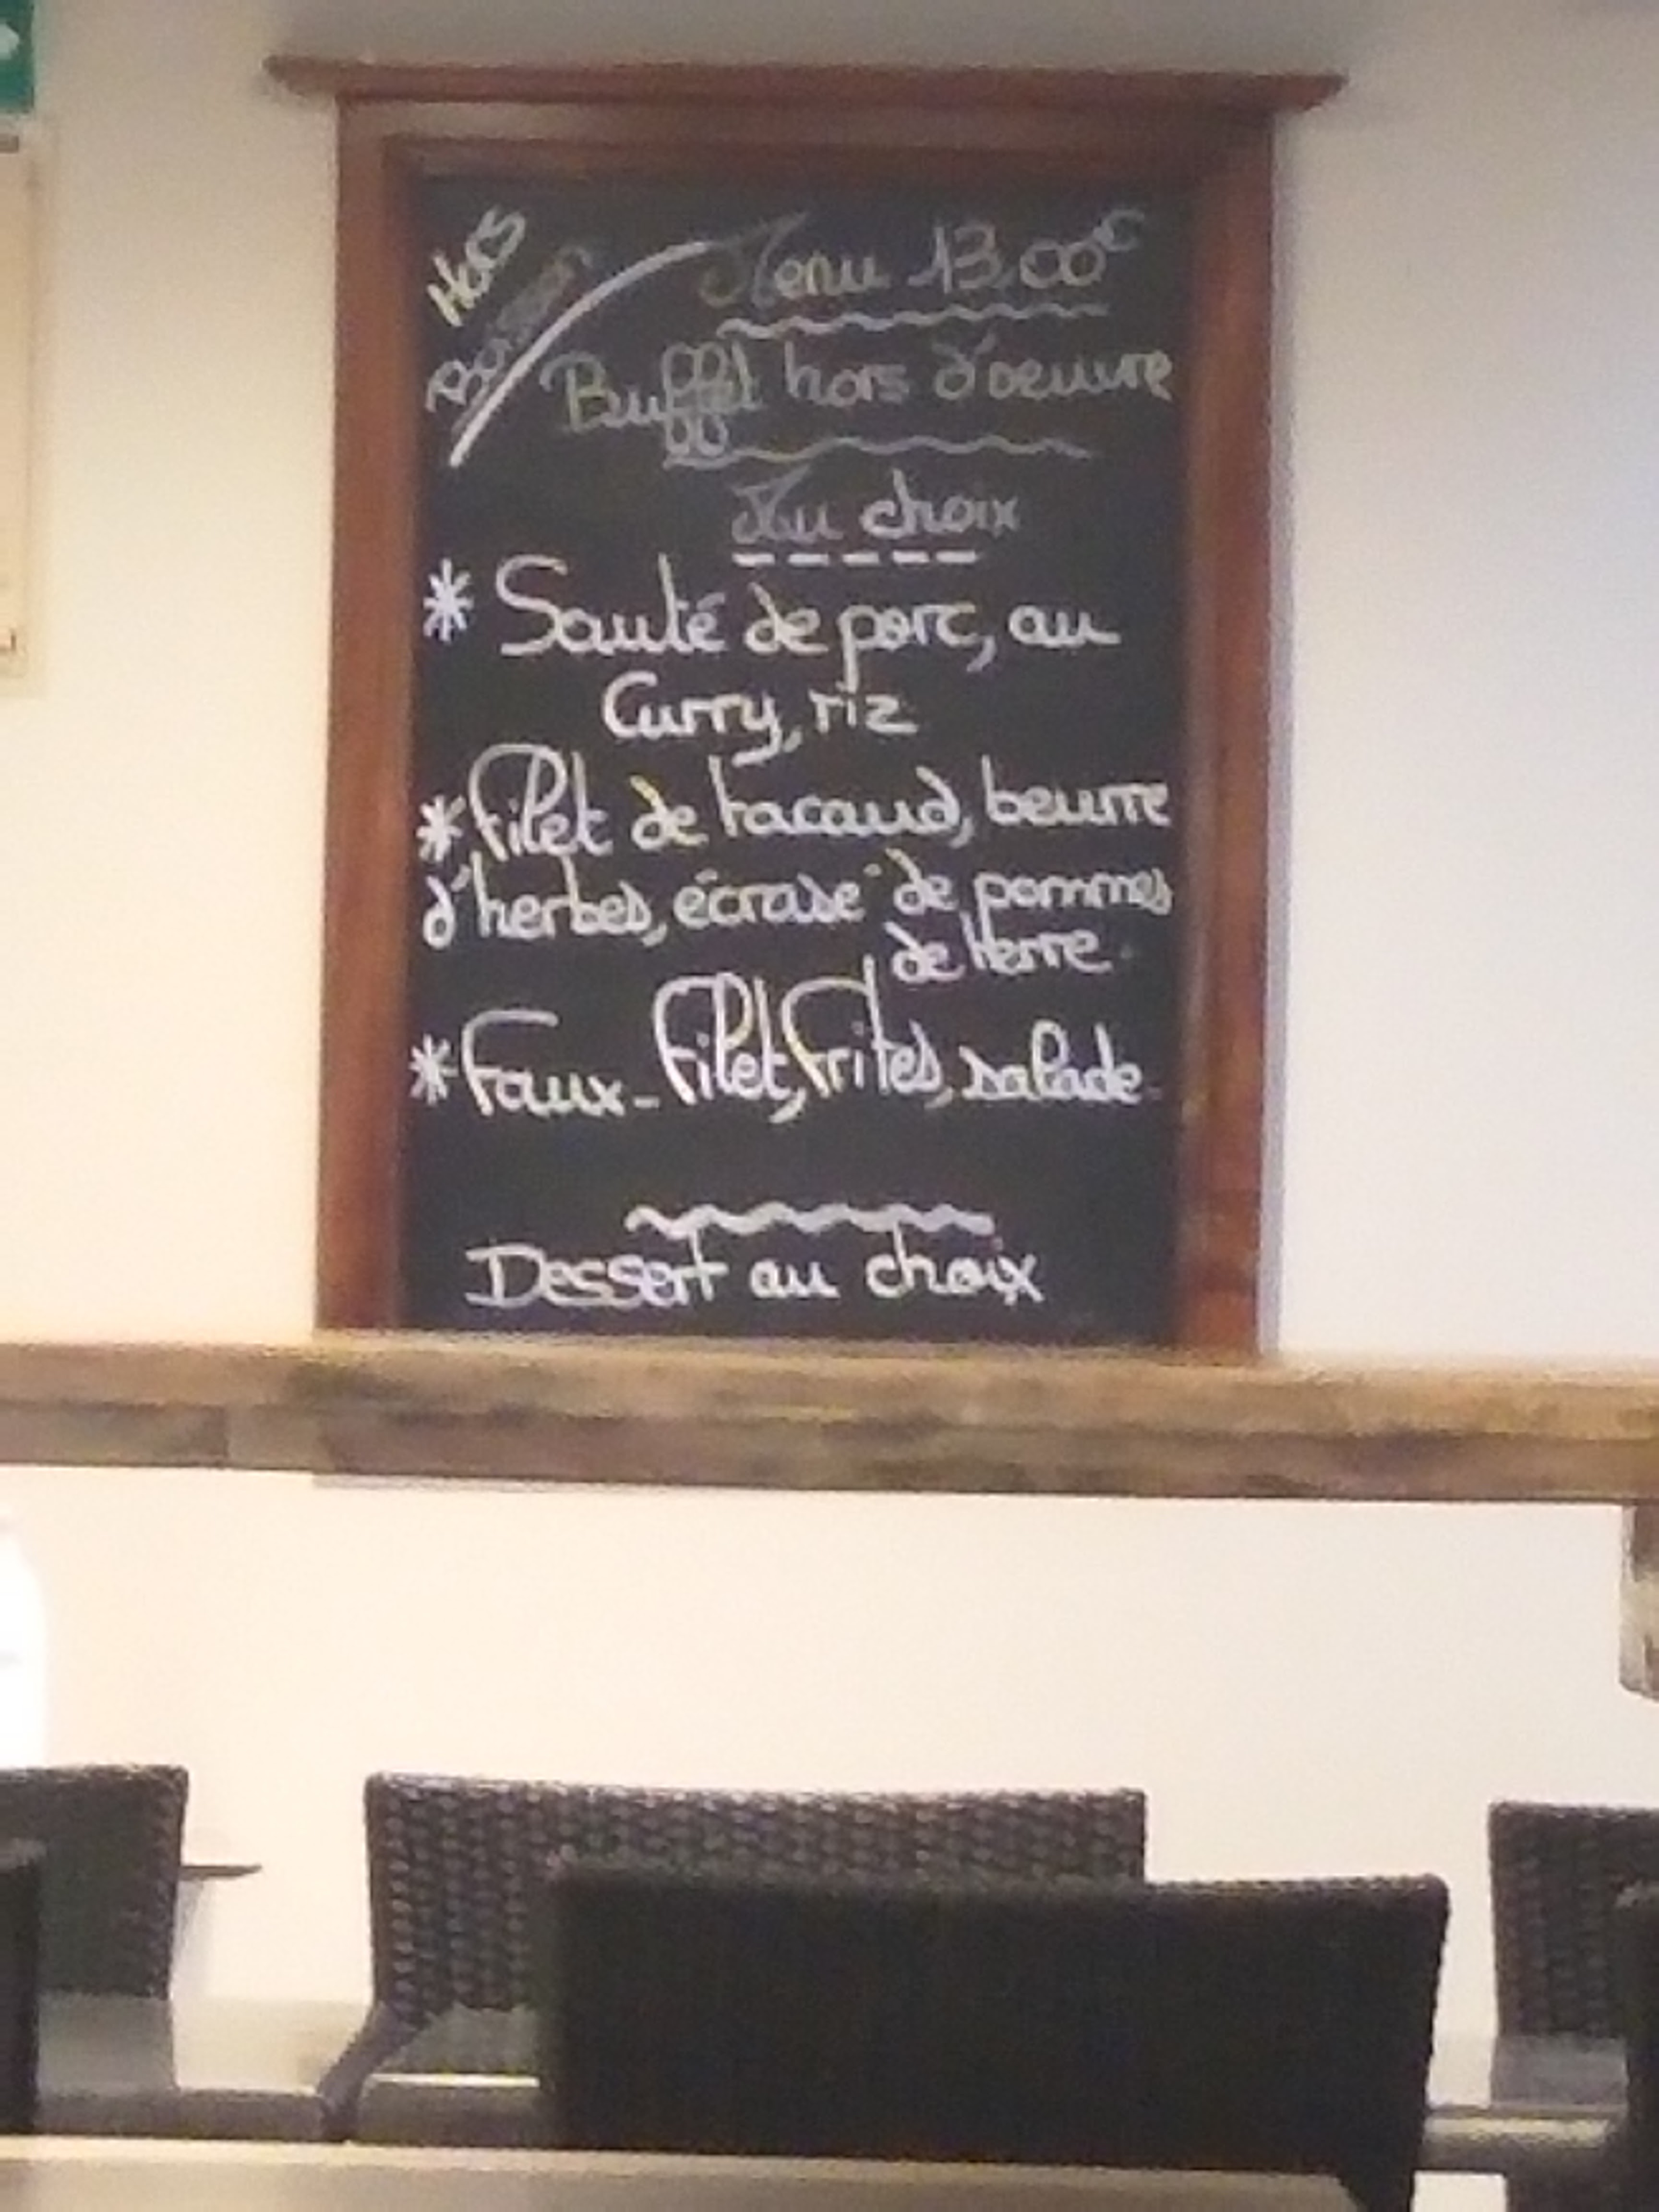 Hors
Boisson
Menu 13.00€
Buffet hors d'oeuvre
Au choix
* Sauté de porc, au
Curry, riz
* Filet de tacaud, beurre
d'herbes, écrasé de pommes
de terre.
* Faux-Filet, Frites, salade.
Dessert au choix